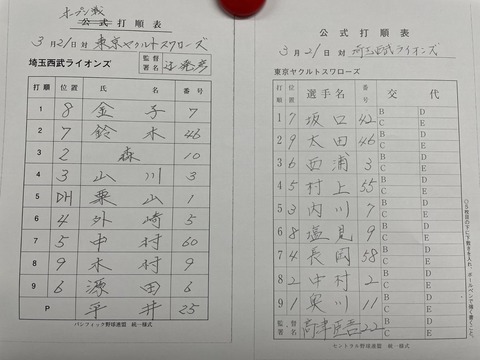 オープン戦
公式打順表
3月21日対 東京ヤクルトスワローズ
埼玉西武ライオンズ 監督署名 辻発彦
打順 位置 氏名 番号
1 8 金子 7
2 7 鈴木 46
3 2 森 10
4 3 山川 3
5 DH 栗山 1
6 4 外崎 5
7 5 中村 60
8 9 木村 9
9 6 源田 6
P 平井 25
パシフィック野球連盟 統一様式
公式打順表
3月21日 対 埼玉西武ライオンズ
東京ヤクルトスワローズ
打順 位置 選手名 番号 交代
1 7 坂口 42 B C D E
2 9 太田 46 B C D E
3 6 西浦 3 B C D E
4 5 村上 55 B C D E
5 3 内川 7 B C D E
6 8 塩見 9 B C D E
7 4 長岡 58 B C D E
8 2 中村 2 B C D E
9 1 奥川 11 B C D E
監督署名 高津臣吾 22 B C D E
セントラル野球連盟 統一様式